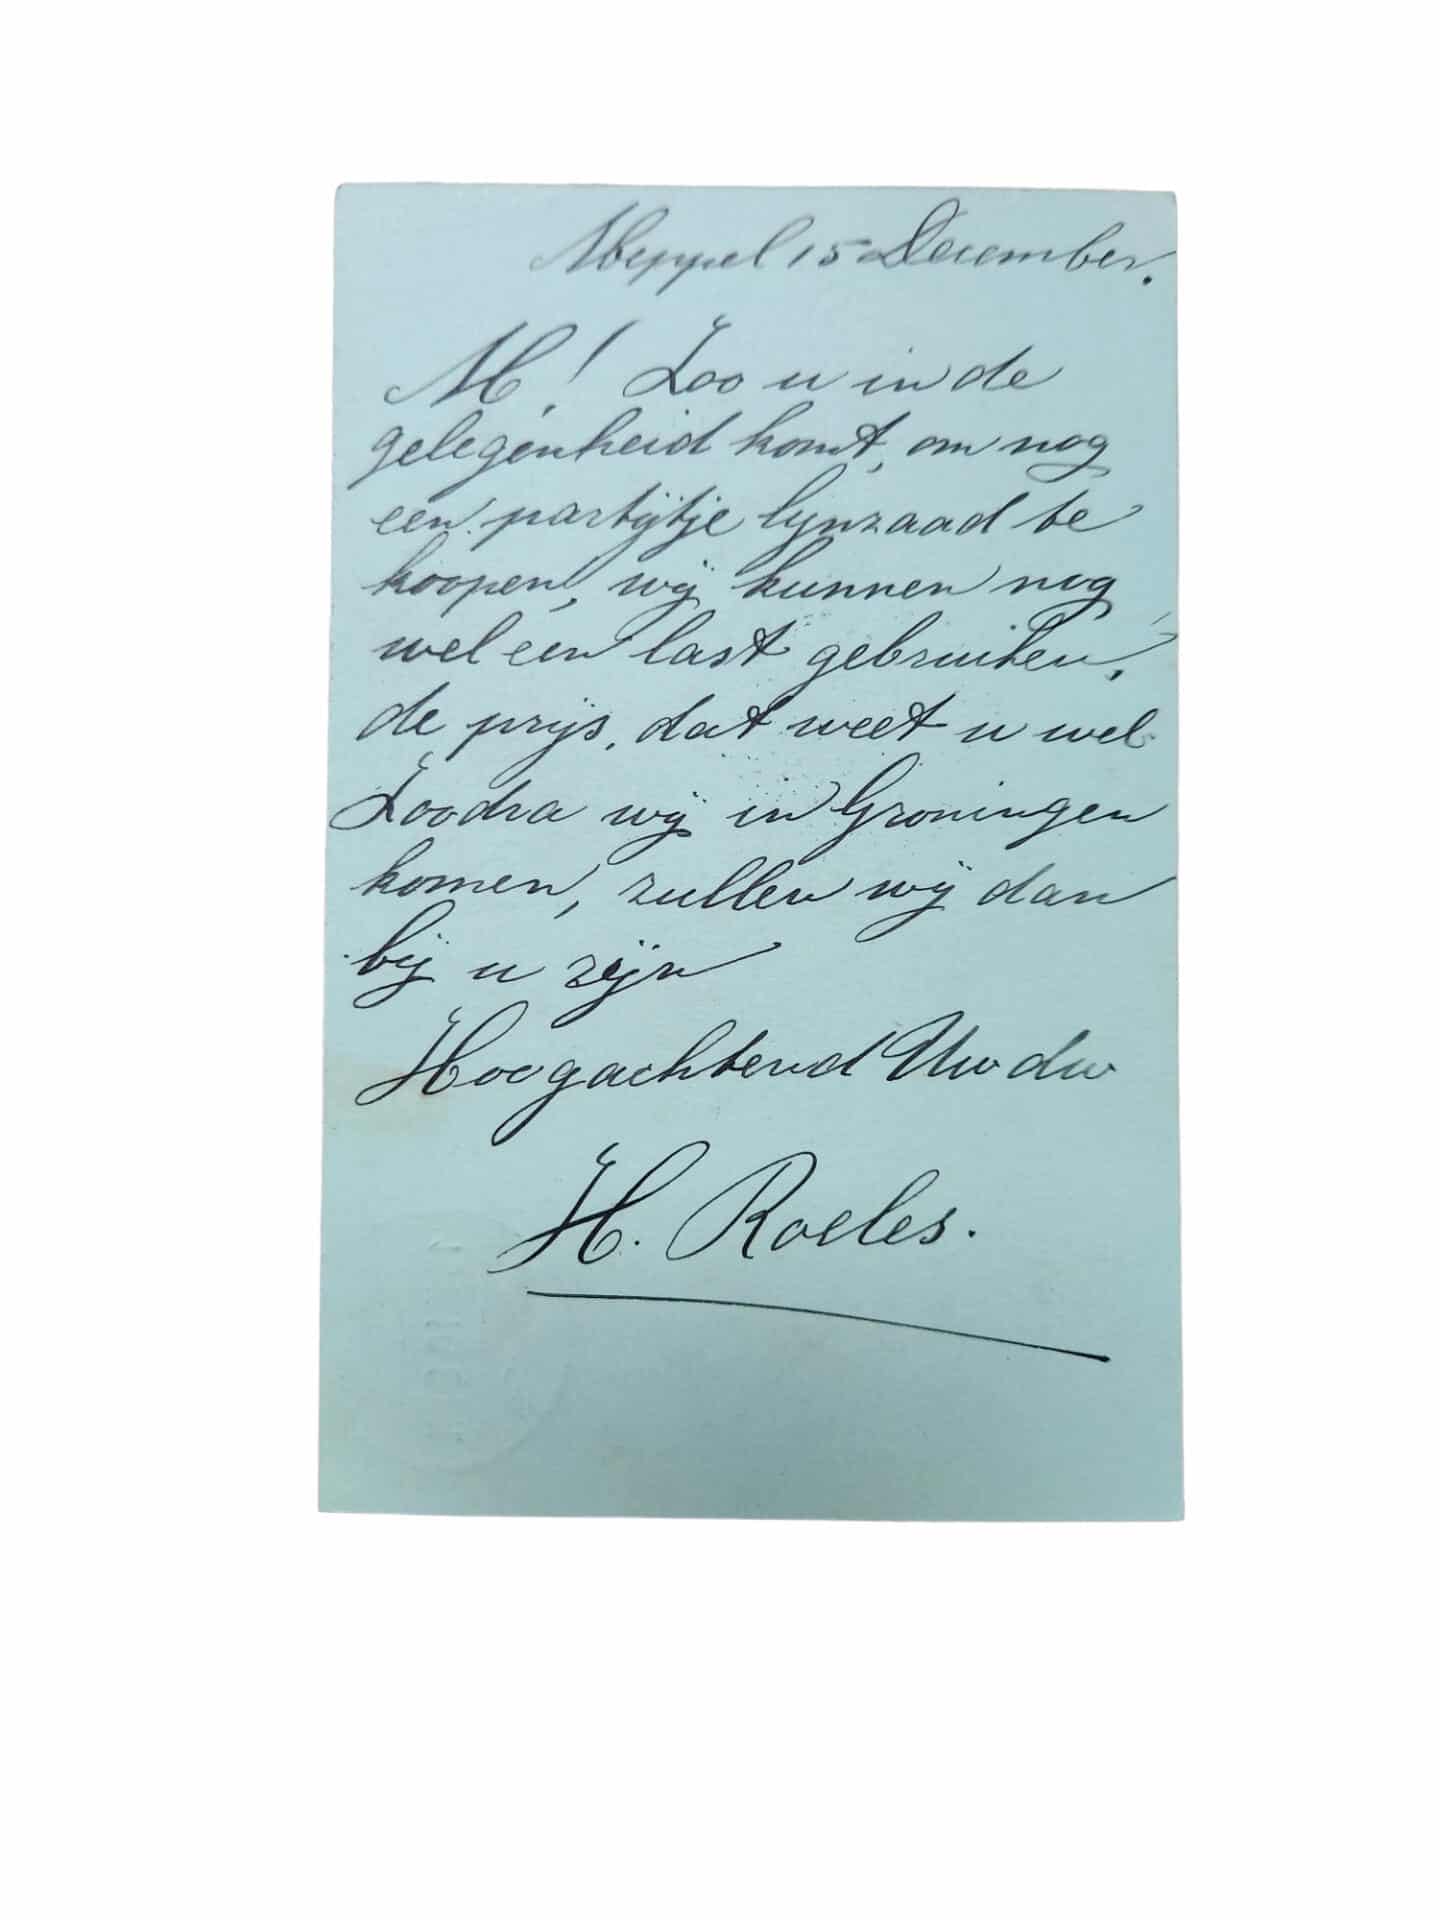 Meppel 15 December.
M! Zoo u in de
gelegenheid komt, om nog
een partijtje lynzaad te
koopen, wij kunnen nog
wel een last gebruiken,
de prijs, dat weet u wel
Zoodra wij in Groningen
komen, zullen wij dan
bij u zijn
Hoogachtend Uw dw
H. Roeles.